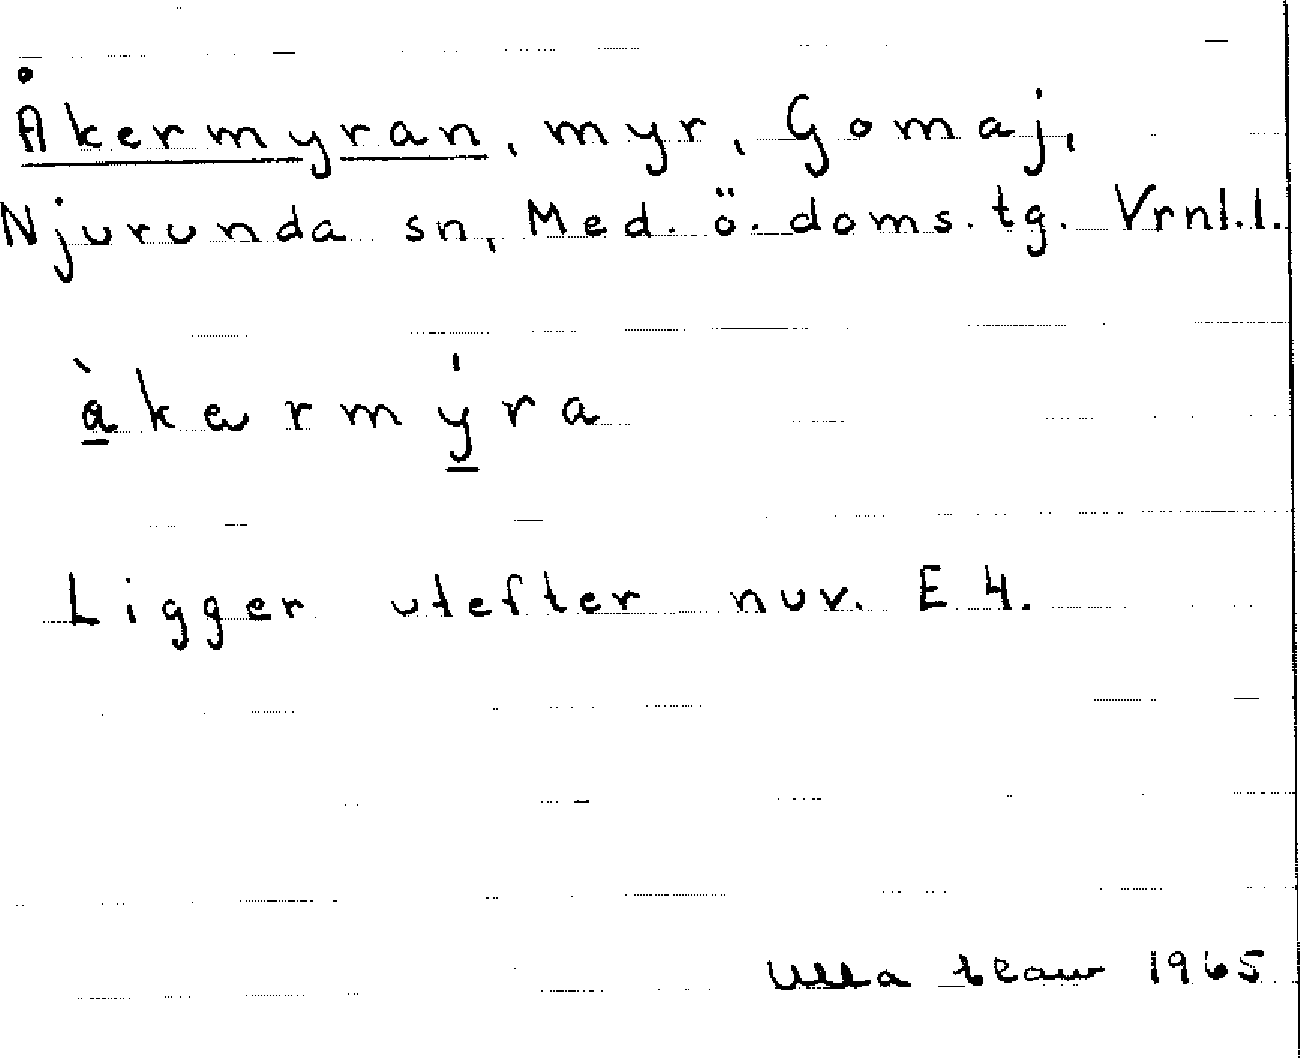 Åkermyran, myr, Gomaj,
Njurunda sn, Med. ö. doms. tg. Vrnl.l.
à̲kərmý̲ra
Ligger utefter nuv. E 4.
Ulla 1965